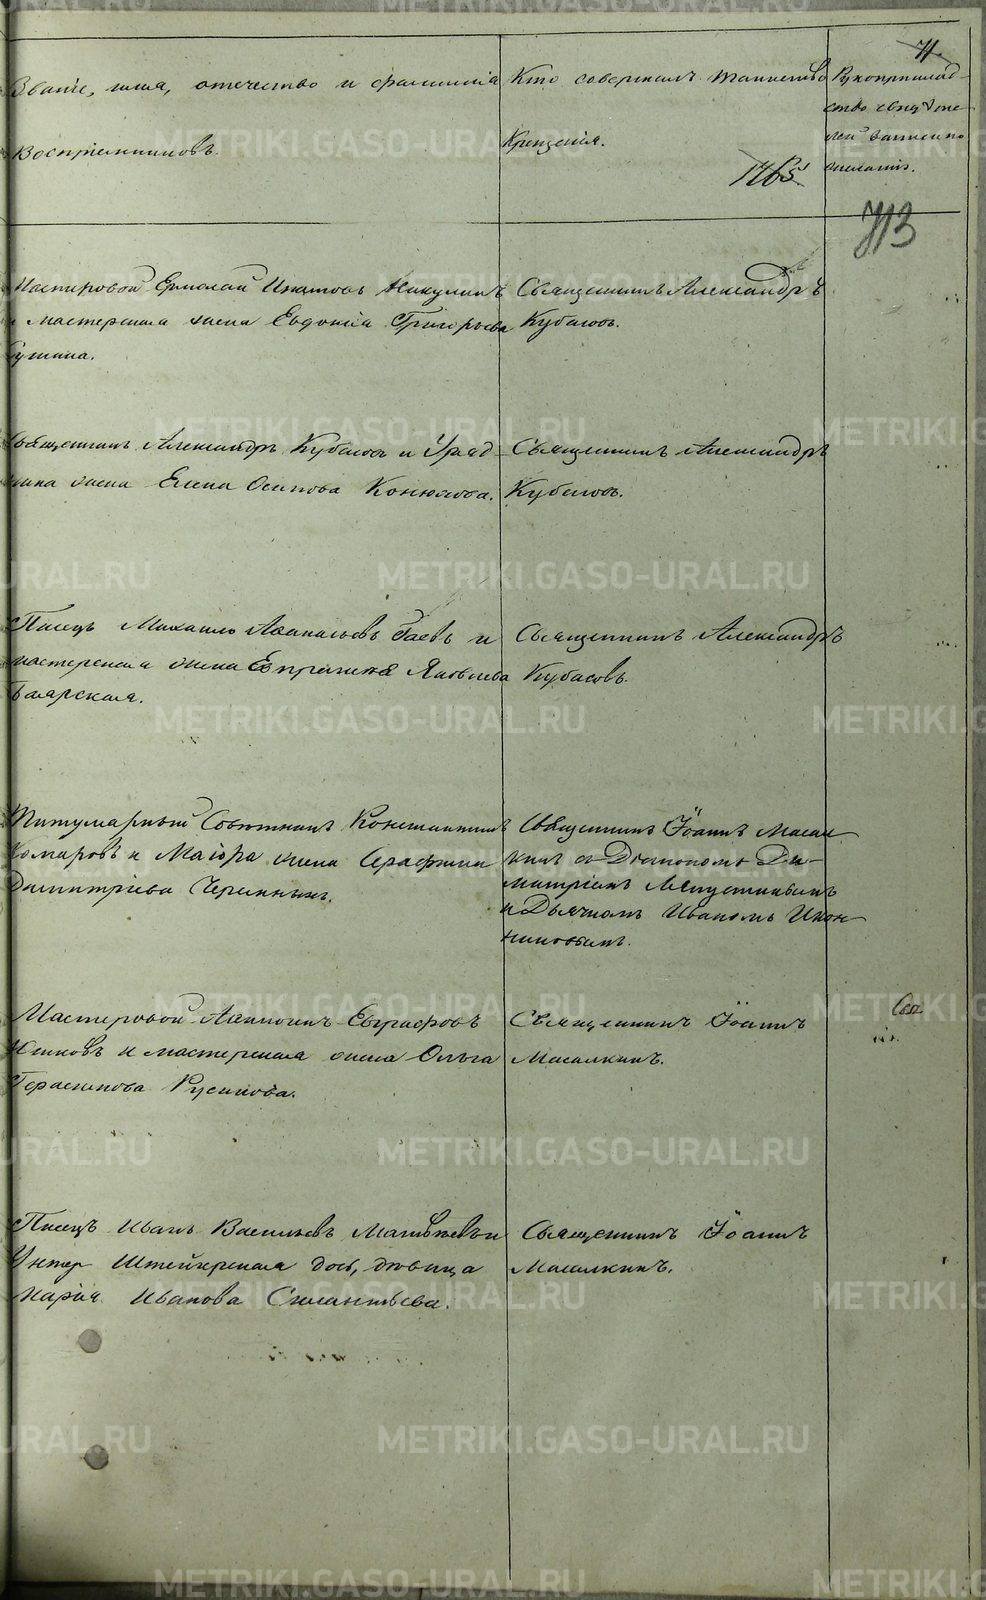 Званіе, имя, отчество и фамилія
Воспріемниковъ.
Кто совершалъ таинство
Крещенія.
Рукоприклад-
ство свидѣте-
лей записи по
желанію.
71.
713
Мастировой Ермолай Ипатовъ Никулинъ
и мастерская жена Евдокія Григорьева
Священникъ Александръ
Кубасовъ.
Священникъ Александръ Кубасовъ и Уряд-
ника жена Елена Осипова Конюхова.
Священникъ Александръ
Кубасовъ.
Писецъ Михаило Аѳанасьевъ Гаевъ и
мастерская жена Евпраксія Яковлева
Боярская.
Священникъ Александръ
Кубасовъ.
Титулярный Совѣтникъ Константинъ
Комаровъ и Маіора жена Серафима
Димитріева Черкиныхъ.
Священникъ Іоаннъ Масал-
кинъ съ Діакономъ Ди-
митріемъ
и Дьячкомъ Иваномъ Икон-
никовымъ.
Мастеровой Евграфовъ
и мастерская жена Ольга
Герасимова Русинова.
Священникъ Іоаннъ
Масалкинъ.
Писецъ Иванъ Васильевъ Матвѣевъ и
Унтер Штейгерская дочь, дѣвица
Марія Иванова Силантьева.
Священникъ Іоаннъ
Масалкинъ.
METRIKI.GASO-URAL.RU